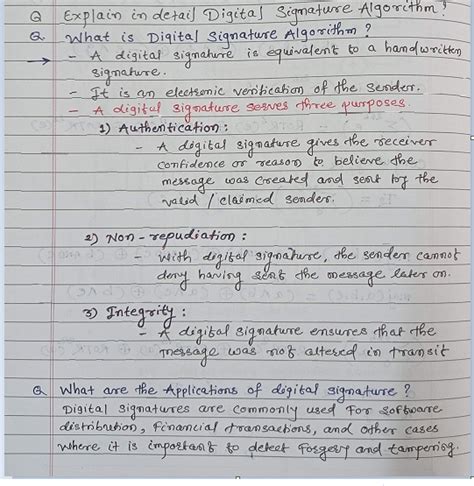 Q Explain in detail Digital Signature Algorithm?
Q. What is Digital Signature Algorithm?
→ - A digital signature is equivalent to a handwritten
signature.
- It is an electronic verification of the sender.
- A digital signature serves three purposes.
1) Authentication:
- A digital signature gives the receiver
confidence or reason to believe the
message was created and sent by the
valid / claimed sender.
2) Non-repudiation:
- With digital signature, the sender cannot
deny having sent the message later on.
3) Integrity:
- A digital signature ensures that the
message was not altered in transit
Q What are the Applications of digital signature?
Digital signatures are commonly used for software
distribution, financial transactions, and other cases
where it is important to detect forgery and tampering.